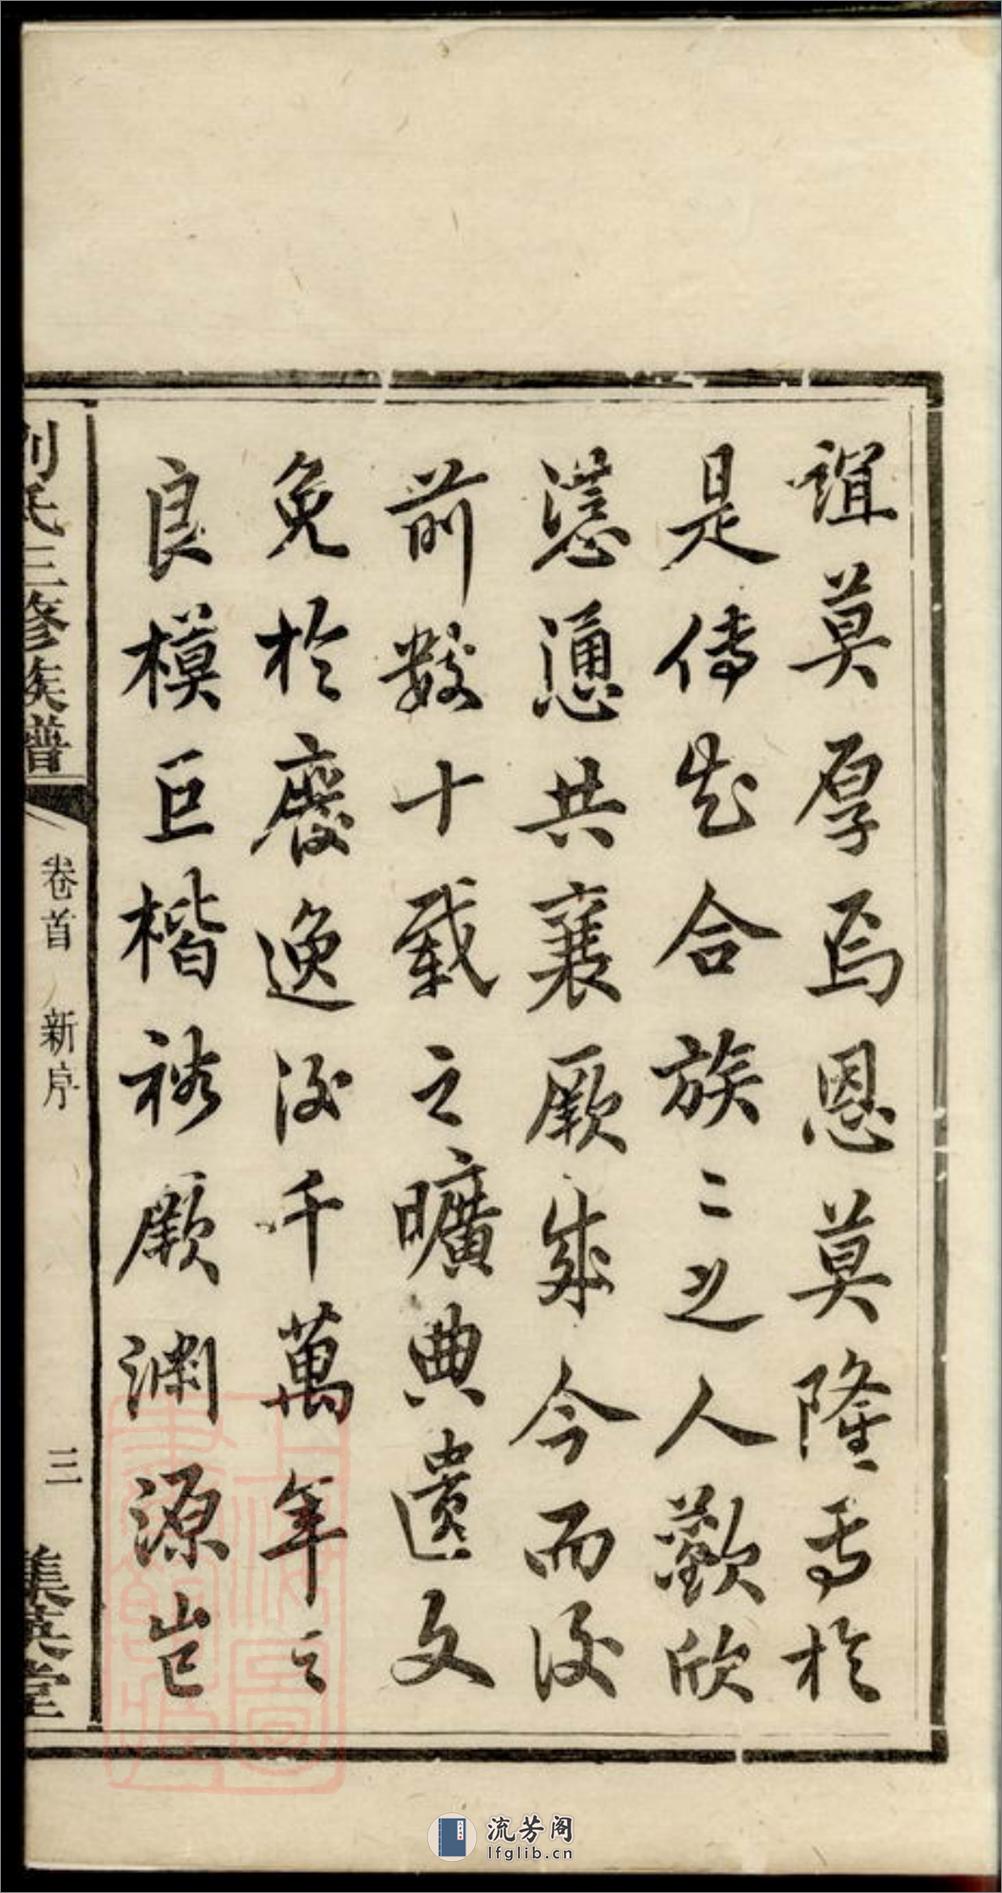 誼莫厚焉恩莫隆焉於
是傳知合族〻之人歡欣
慫慂共襄厥成今而後
前數十載之曠典遺文
免於廢逸後千萬年之
良模巨楷裕厥淵源豈
劉氏三修族譜
卷首 新序
三
集英堂
上海圖書館藏
流芳阁
lfglib.cn